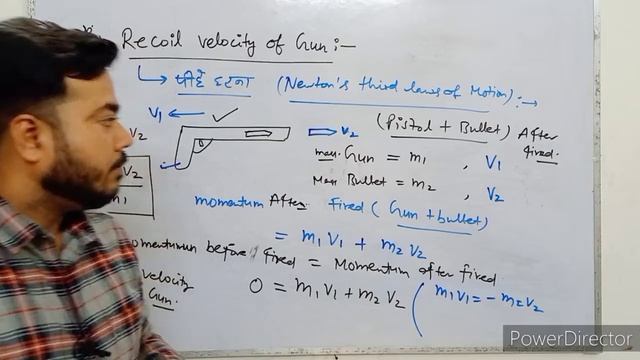 Recoil velocity of Gun:-
↳ पीछे हटना (Newton's third laws of Motion):→
V₁ ← ✓
(Pistol + Bullet) After fired.
⇒ V₂
V₂
mass Gun = m₁ , V₁
V₂
m₁
Mass Bullet = m₂ , V₂
momentum After fired (Gun + bullet)
= m₁V₁ + m₂V₂
omentumun before fired = Momentum after fired
velocity
Gun.
0 = m₁V₁ + m₂V₂ ( m₁V₁ = - m₂V₂
PowerDirector